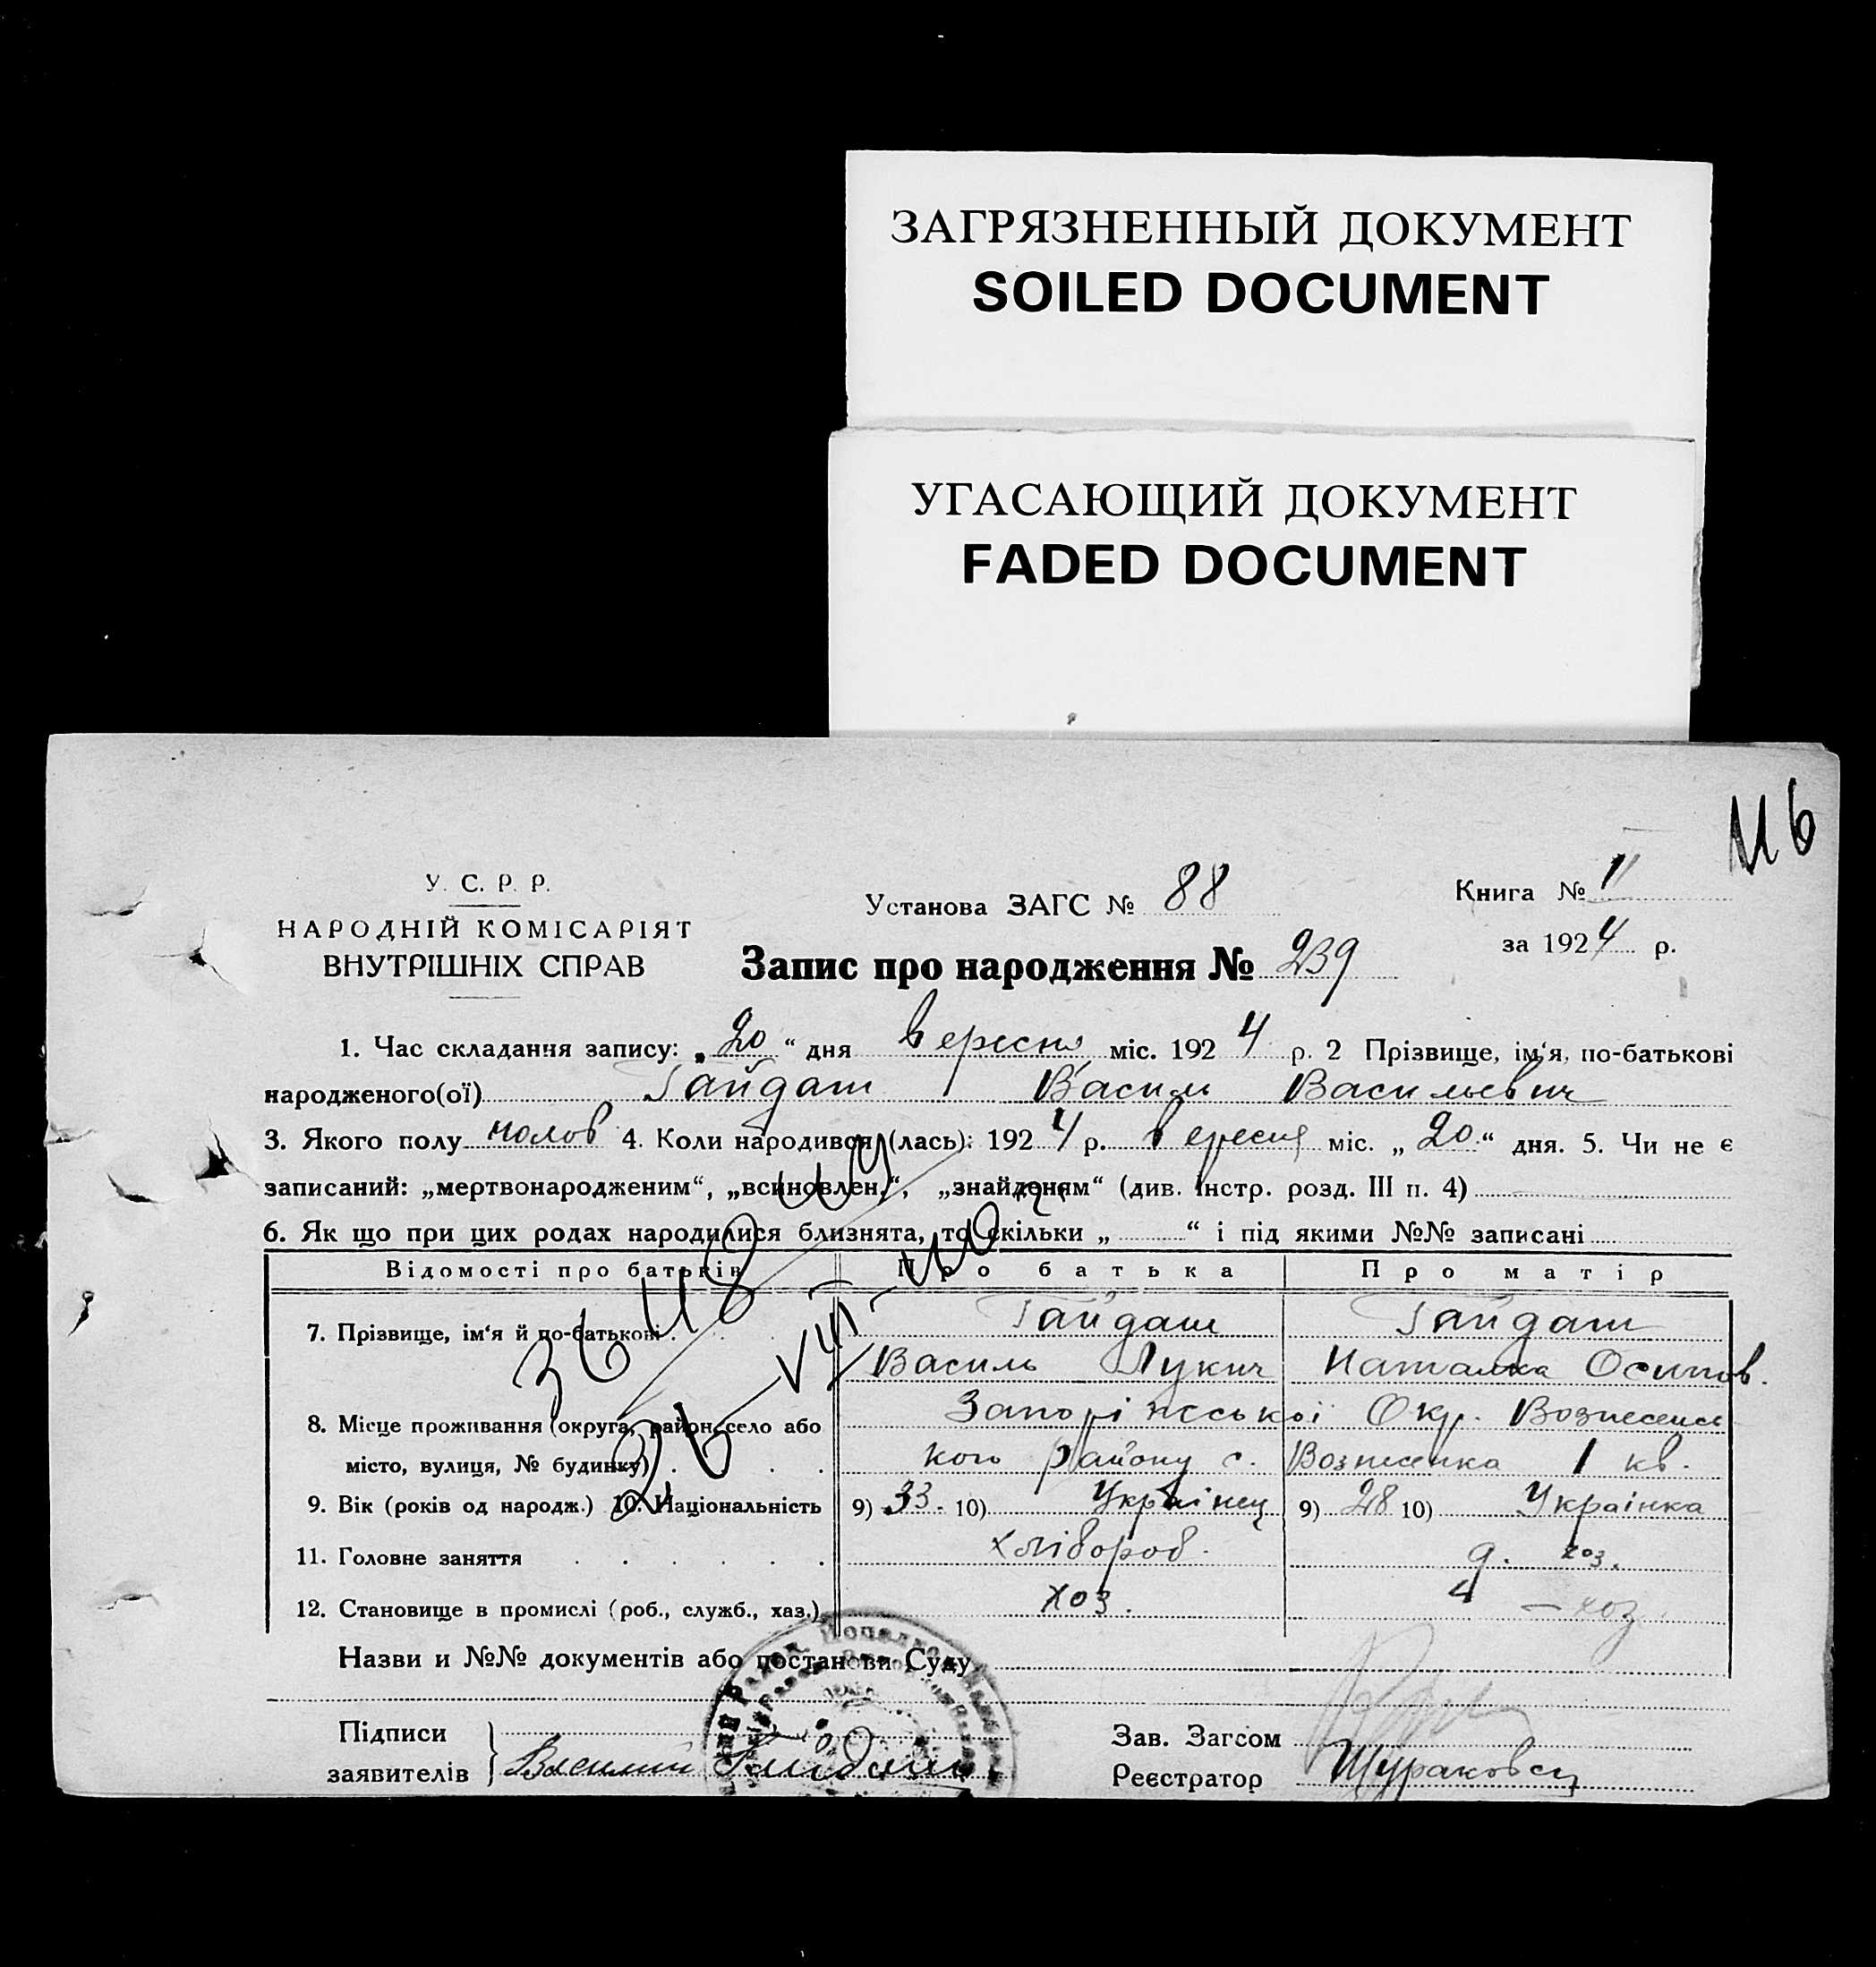 ЗАГРЯЗНЕННЫЙ ДОКУМЕНТ
SOILED DOCUMENT
УГАСАЮЩИЙ ДОКУМЕНТ
FADED DOCUMENT
У. С. Р. Р.
НАРОДНІЙ КОМІСАРІЯТ
ВНУТРІШНІХ СПРАВ
Установа ЗАГС № 88
Запис про народження № 239
Книга № 11
за 1924 р.
1. Час складання запису: „20“ дня вересня міс. 1924 р. 2 Прізвище, ім‘я, по-батькові
народженого(ої) Гайдаш Василь Васильевич
3. Якого полу молов 4. Коли народився (лась): 1924 р. вересня міс. „20“ дня. 5. Чи не є
записаний: „мертвонародженим“, „всиновлен.“, „знайденям“ (див. інстр. розд. III п. 4)
6. Як що при цих родах народилися близнята, то скільки „ “ і під якими №№ записані
Відомості про батьків Про батька Про матір
7. Прізвище, ім‘я й по-батькові Гайдаш Гайдаш
Василь Лукич Наталка Осипов.
8. Місце проживання (округа, район, село або Запорі Окр. Вознесенс
місто, вулиця, № будинку) кого району с. Вознесенка 1 кв.
9. Вік (років од народж.) 10. Національність 9) 33. 10) Українец 9) 28 10) Українка
11. Головне заняття хлібороб. д. хоз.
12. Становище в промислі (роб., служб., хаз.) хоз. хоз.
Назви и №№ документів або постанови Суду
Підписи
заявителів Василий Гайдаш
Зав. Загсом
Реєстратор